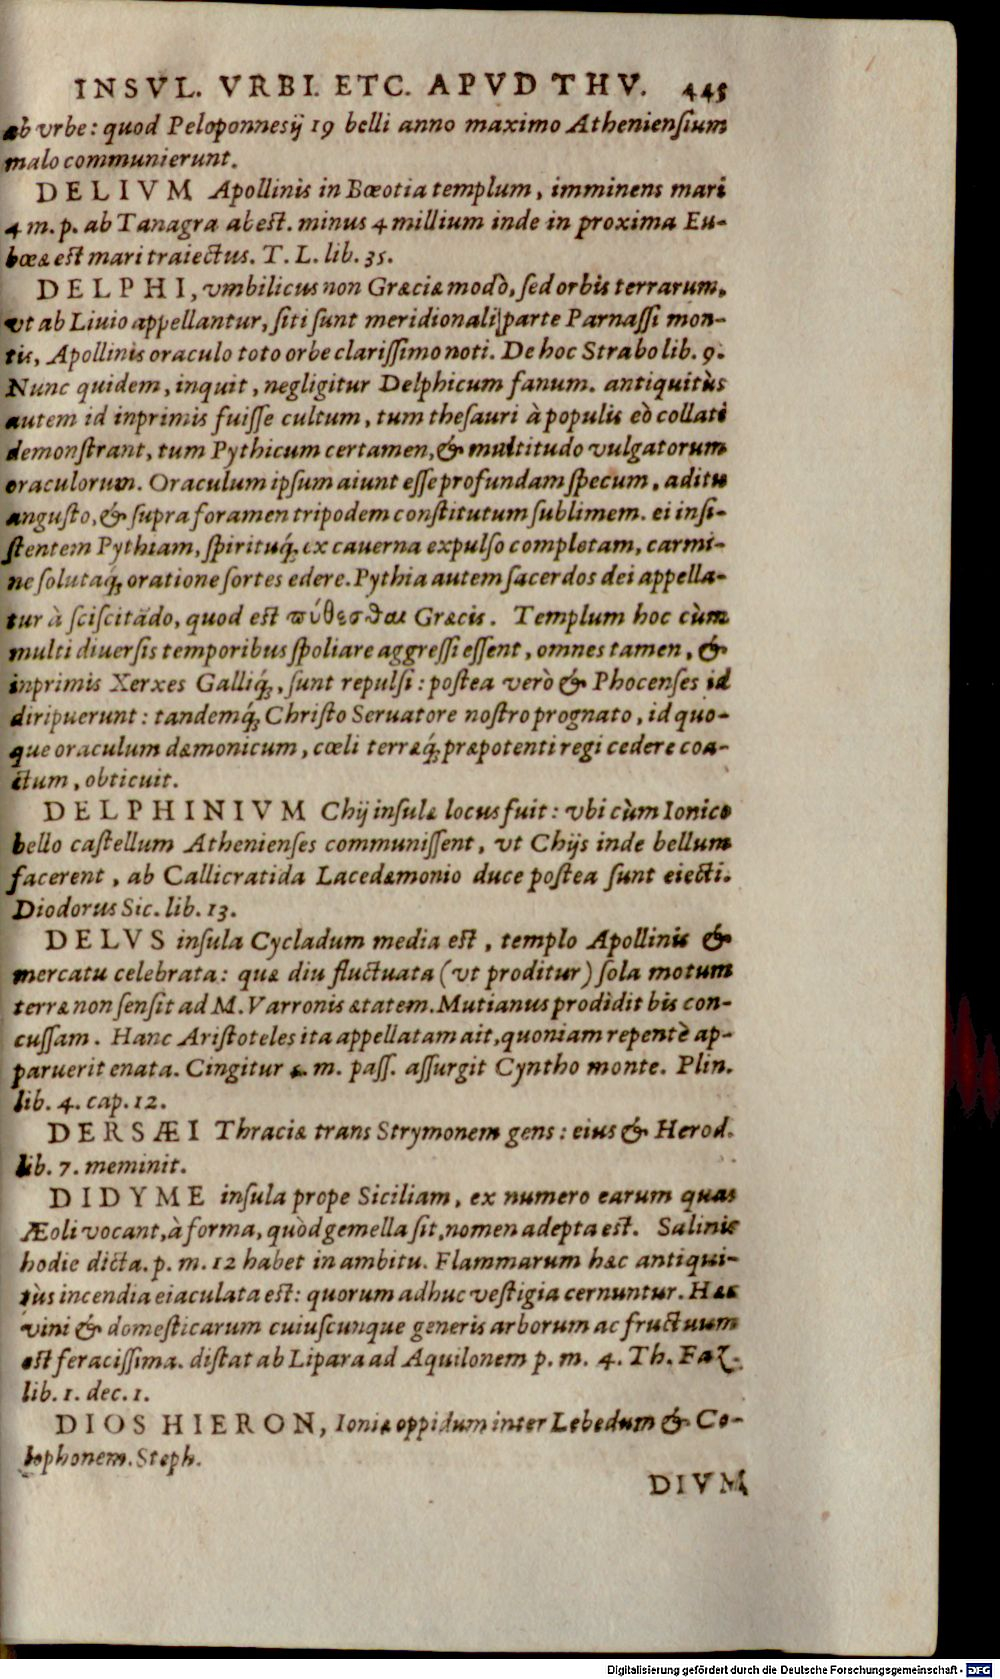 INSVL. VRBI. ETC. APVD THV. 445
ab vrbe: quod Peloponnesij 19 belli anno maximo Atheniensium
malo communierunt.
DELIVM Apollinis in Bœotia templum, imminens mari
4 m. p. ab Tanagra abest. minus 4 millium inde in proxima Eu-
bœæ est mari traiectus. T. L. lib. 35.
DELPHI, vmbilicus non Græciæ modò, sed orbis terrarum,
vt ab Liuio appellantur, siti sunt meridionali parte Parnassi mon-
tis, Apollinis oraculo toto orbe clarissimo noti. De hoc Strabo lib. 9.
Nunc quidem, inquit, negligitur Delphicum fanum. antiquitùs
autem id inprimis fuisse cultum, tum thesauri à populis eò collati
demonstrant, tum Pythicum certamen, & multitudo vulgatorum
oraculorum. Oraculum ipsum aiunt esse profundam specum, aditu
angusto, & supra foramen tripodem constitutum sublimem. ei insi-
stentem Pythiam, spirituq́; ex cauerna expulso completam, carmi-
ne solutaq́; oratione sortes edere. Pythia autem sacerdos dei appella-
tur à sciscitādo, quod est πύθεσθαι Græcis. Templum hoc cùm
multi diuersis temporibus spoliare aggressi essent, omnes tamen, &
inprimis Xerxes Galliq́;, sunt repulsi: postea verò & Phocenses id
diripuerunt: tandemq́; Christo Seruatore nostro prognato, id quo-
que oraculum dæmonicum, cœli terræq́; præpotenti regi cedere coa-
ctum, obticuit.
DELPHINIVM Chij insulæ locus fuit: vbi cùm Ionico
bello castellum Athenienses communissent, vt Chijs inde bellum
facerent, ab Callicratida Lacedæmonio duce postea sunt eiecti.
Diodorus Sic. lib. 13.
DELVS insula Cycladum media est, templo Apollinis &
mercatu celebrata: quæ diu fluctuata (vt proditur) sola motum
terræ non sensit ad M. Varronis ætatem. Mutianus prodidit bis con-
cussam. Hanc Aristoteles ita appellatam ait, quoniam repentè ap-
paruerit enata. Cingitur m. pass. assurgit Cyntho monte. Plin.
lib. 4. cap. 12.
DERSÆI Thraciæ trans Strymonem gens: eius & Herod.
lib. 7. meminit.
DIDYME insula prope Siciliam, ex numero earum quas
Æoli vocant, à forma, quòd gemella sit, nomen adepta est. Salinis
hodie dicta. p. m. 12 habet in ambitu. Flammarum hæc antiqui-
tùs incendia eiaculata est: quorum adhuc vestigia cernuntur. Hæc
vini & domesticarum cuiuscunque generis arborum ac fructuum
est feracissima. distat ab Lipara ad Aquilonem p. m. 4. Th. Faz.
lib. 1. dec. 1.
DIOS HIERON, Ioniæ oppidum inter Lebedum & Co-
lophonem. Steph.
DIVM
Digitalisierung gefördert durch die Deutsche Forschungsgemeinschaft - DFG